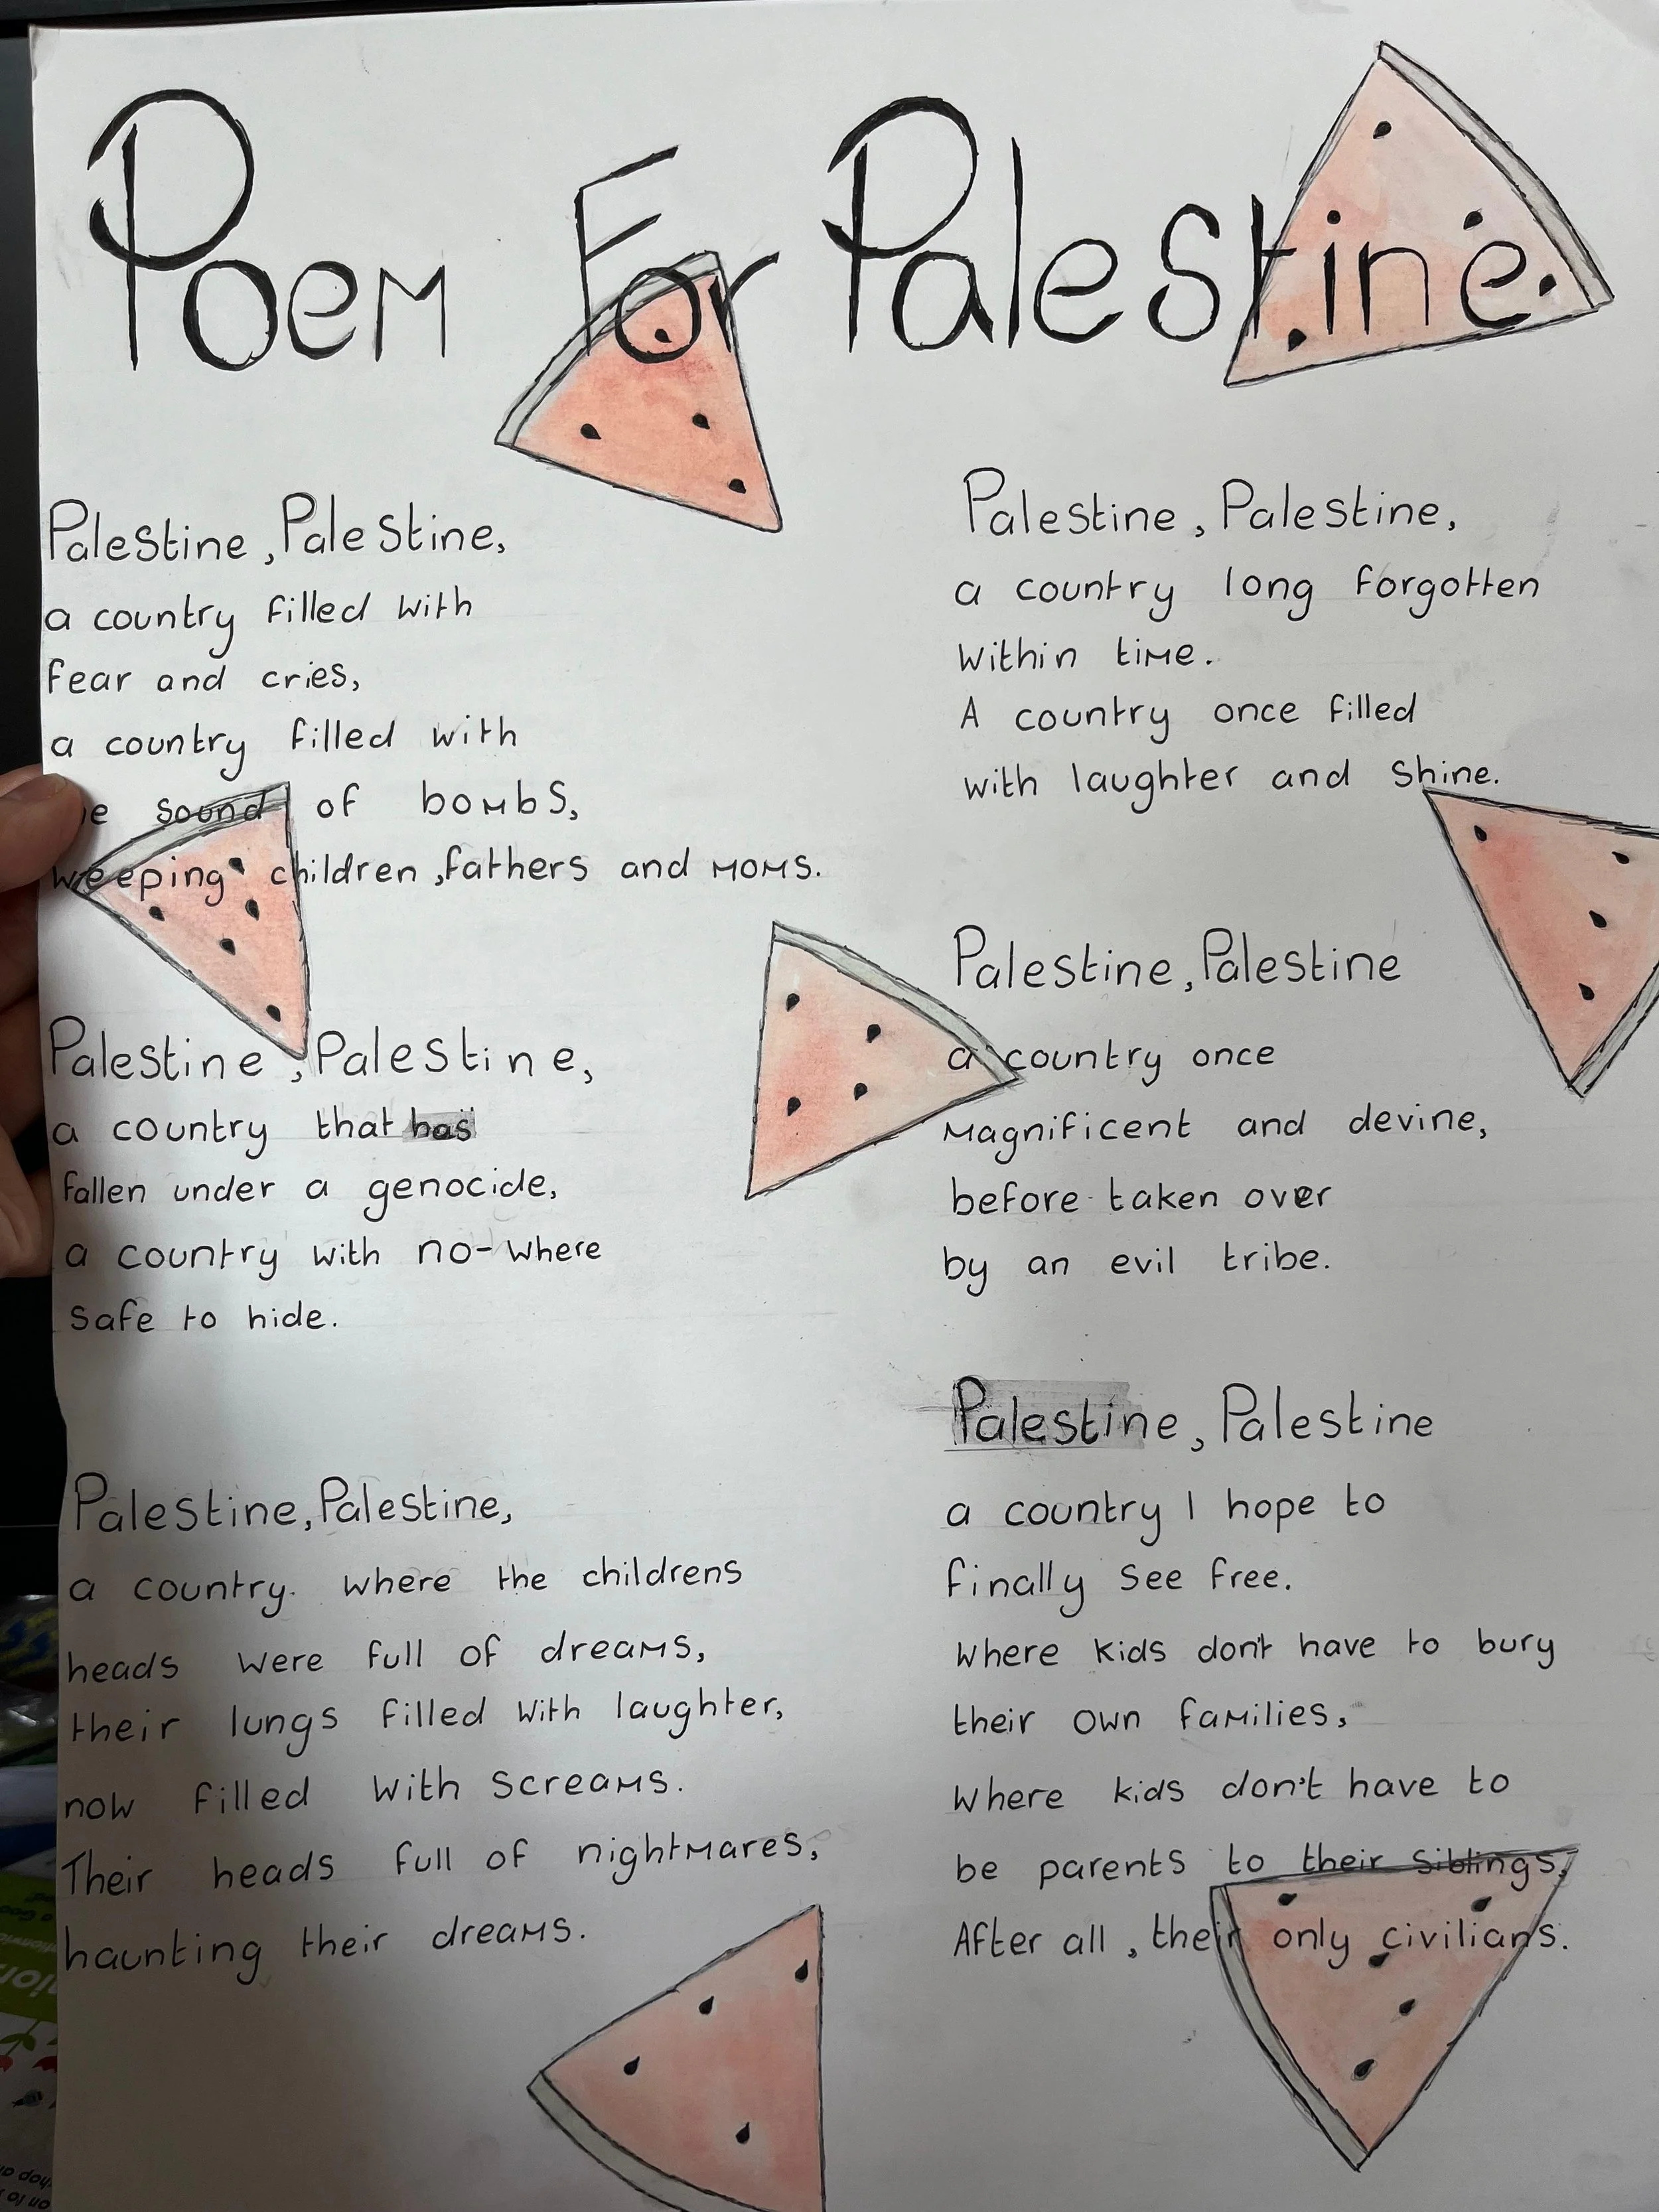 Poem For Palestine
Palestine, Palestine,
a country filled with
fear and cries,
a country filled with
sound of bombs,
weeping children, fathers and moms.
Palestine, Palestine,
a country that has
fallen under a genocide,
a country with no-where
safe to hide.
Palestine, Palestine,
a country. where the childrens
heads were full of dreams,
their lungs filled with laughter,
now filled with screams.
Their heads full of nightmares,
haunting their dreams.
Palestine, Palestine,
a country long forgotten
within time.
A country once filled
with laughter and shine.
Palestine, Palestine
a country once
magnificent and devine,
before taken over
by an evil tribe.
Palestine, Palestine
a country I hope to
finally see free.
Where kids don't have to bury
their own families,
Where kids don't have to
be parents to their siblings,
After all, their only civilians.